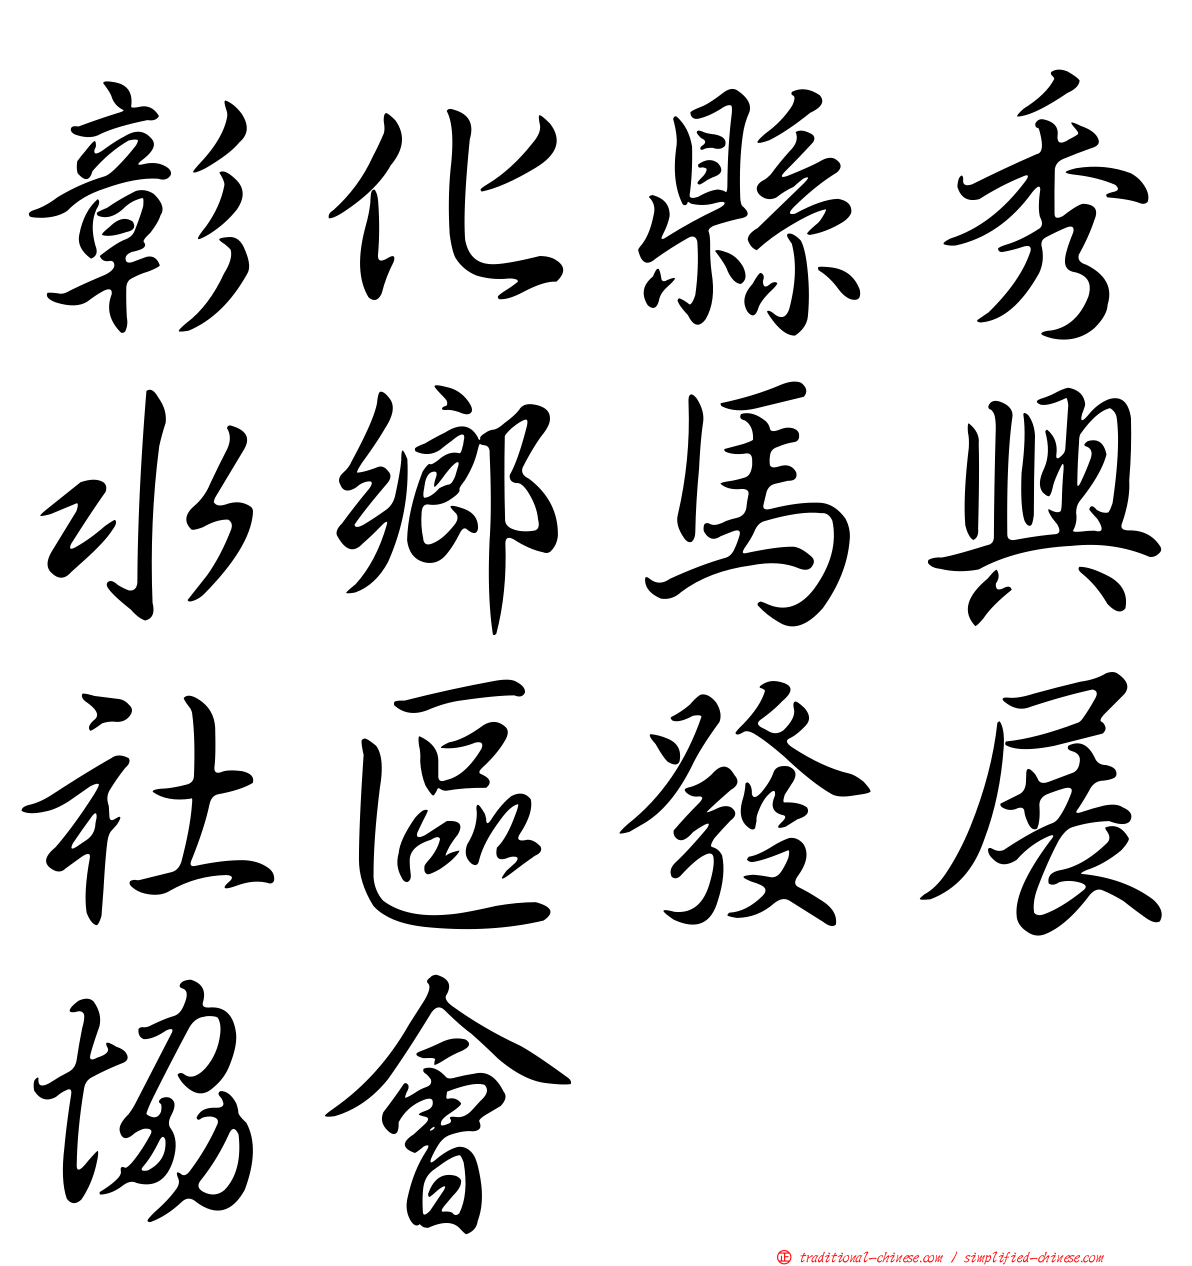 彰化縣秀
水鄉馬興
社區發展
協會
正 traditional-chinese.com / simplified-chinese.com